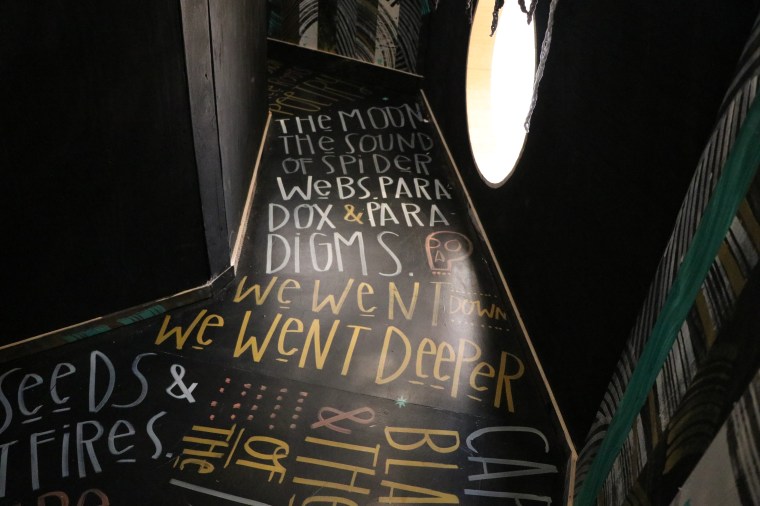 THE MOON.
THE SOUND
OF SPIDER
WEBS. PARA
DOX & PARA
DIGMS.
WE WENT DOWN
WE WENT DEEPER
SEEDS &
FIRES.
OF THE
& THE